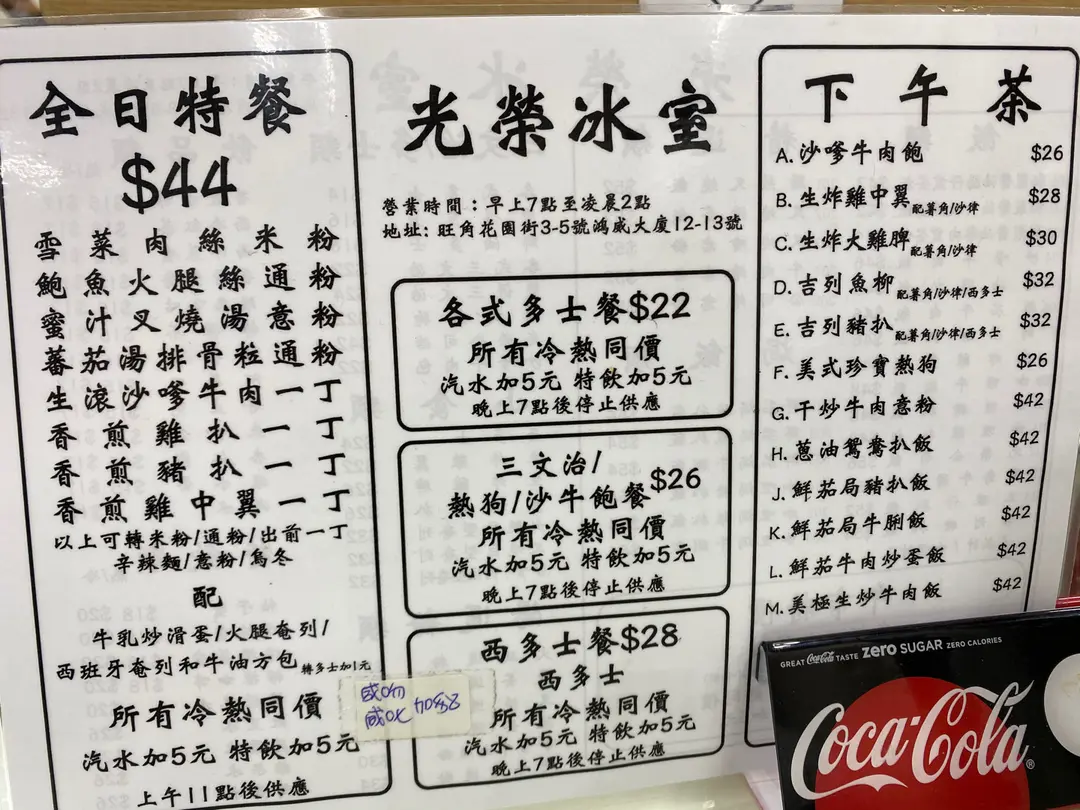 全日特餐
$44
雪菜肉絲米粉
鮑魚火腿絲通粉
蜜汁叉燒湯意粉
蕃茄湯排骨粒通粉
生滾沙嗲牛肉一丁
香煎雞扒一丁
香煎豬扒一丁
香煎雞中翼一丁
以上可轉米粉/通粉/出前一丁
辛辣麵/意粉/烏冬
配
牛乳炒滑蛋/火腿奄列/
西班牙奄列和牛油方包 轉多士加1元
所有冷熱同價
汽水加5元 特飲加5元
上午11點後供應
光榮冰室
營業時間：早上7點至凌晨2點
地址: 旺角花園街3-5號鴻威大廈12-13號
各式多士餐$22
所有冷熱同價
汽水加5元 特飲加5元
晚上7點後停止供應
三文治/
熱狗/沙牛飽餐 $26
所有冷熱同價
汽水加5元 特飲加5元
晚上7點後停止供應
西多士餐$28
西多士
所有冷熱同價
汽水加5元 特飲加5元
晚上7點後停止供應
下午茶
A. 沙嗲牛肉飽 $26
B. 生炸雞中翼 配薯角/沙律 $28
C. 生炸大雞脾 配薯角/沙律 $30
D. 吉列魚柳 配薯角/沙律/西多士 $32
E. 吉列豬扒 配薯角/沙律/西多士 $32
F. 美式珍寶熱狗 $26
G. 干炒牛肉意粉 $42
H. 蔥油鴛鴦扒飯 $42
J. 鮮茄局豬扒飯 $42
K. 鮮茄局牛脷飯 $42
L. 鮮茄牛肉炒蛋飯 $42
M. 美極生炒牛肉飯 $42
GREAT Coca-Cola TASTE zero SUGAR ZERO CALORIES
Coca-Cola